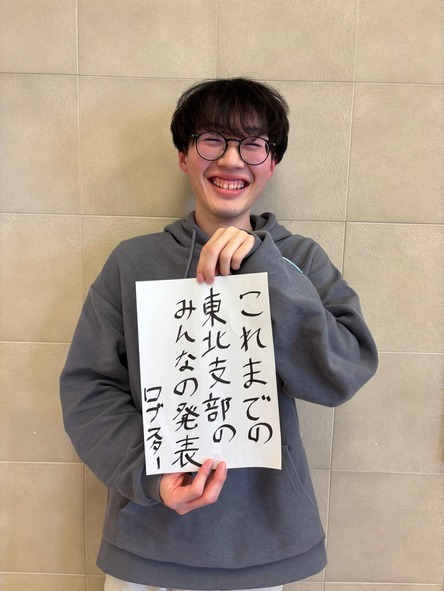 これまでの
東北支部の
みんなの発表
ロブスター